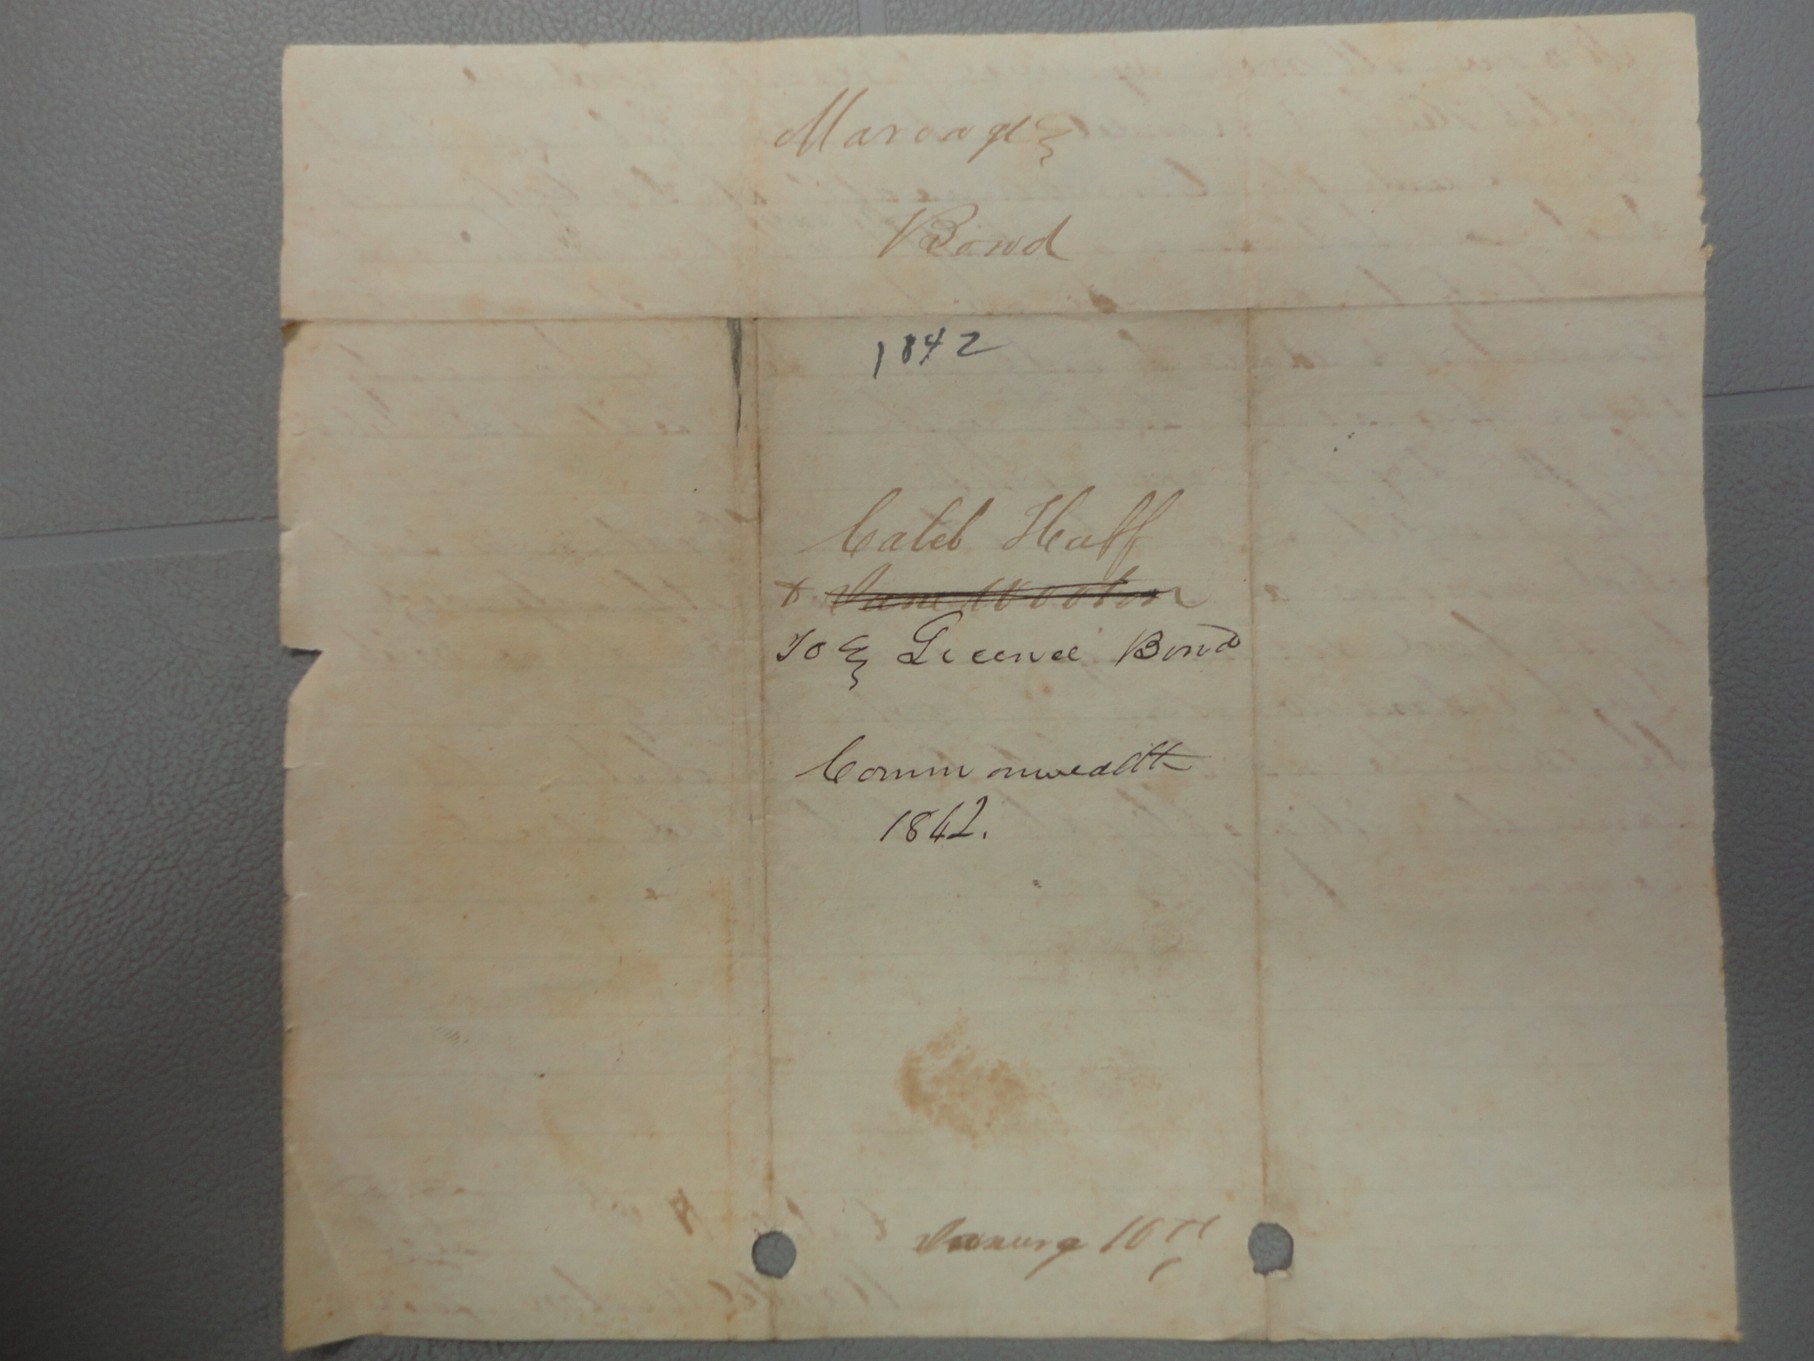 Marrage
Bond
1842
Caleb Huff
& Jane Wooton
To } Licence Bond
Commonwealth
1842.
January 10th